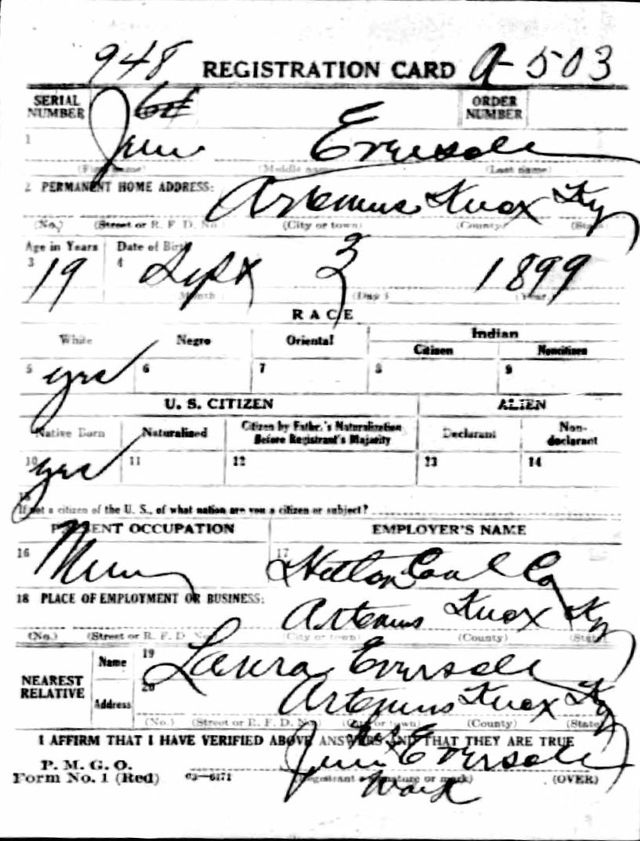 948 REGISTRATION CARD A-503
SERIAL NUMBER ORDER NUMBER
1 Eversole
(First name) (Middle name) (Last name)
2 PERMANENT HOME ADDRESS: Artemus Knox Ky
(No.) (Street or R. F. D. No.) (City or town) (County) (State)
Age in Years Date of Birth
3 19 4 Sept 3 1899
Month (Day) (Year)
RACE
White Negro Oriental Indian
Citizen Noncitizen
5 yes 6 7 8 9
U. S. CITIZEN ALIEN
Native Born Naturalized Citizen by Father's Naturalization Before Registrant's Majority Declarant Non-declarant
10 yes 11 12 13 14
15
If not a citizen of the U. S., of what nation are you a citizen or subject?
PRESENT OCCUPATION EMPLOYER'S NAME
16 17 Coal Co
18 PLACE OF EMPLOYMENT OR BUSINESS:
Artemus Knox Ky
(No.) (Street or R. F. D. No.) (City or town) (County) (State)
NEAREST RELATIVE Name 19 Laura Eversole
Address 20 Artemus Knox Ky
(No.) (Street or R. F. D. No.) (City or town) (County) (State)
I AFFIRM THAT I HAVE VERIFIED ABOVE ANSWERS AND THAT THEY ARE TRUE
P. M. G. O.
Form No. 1 (Red) 03—6171 Eversole
(Registrant's signature or mark) (OVER)
mark